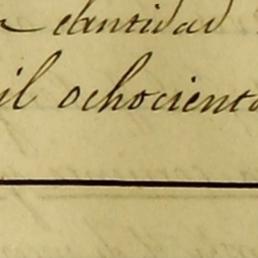 cantidad
il ochociento